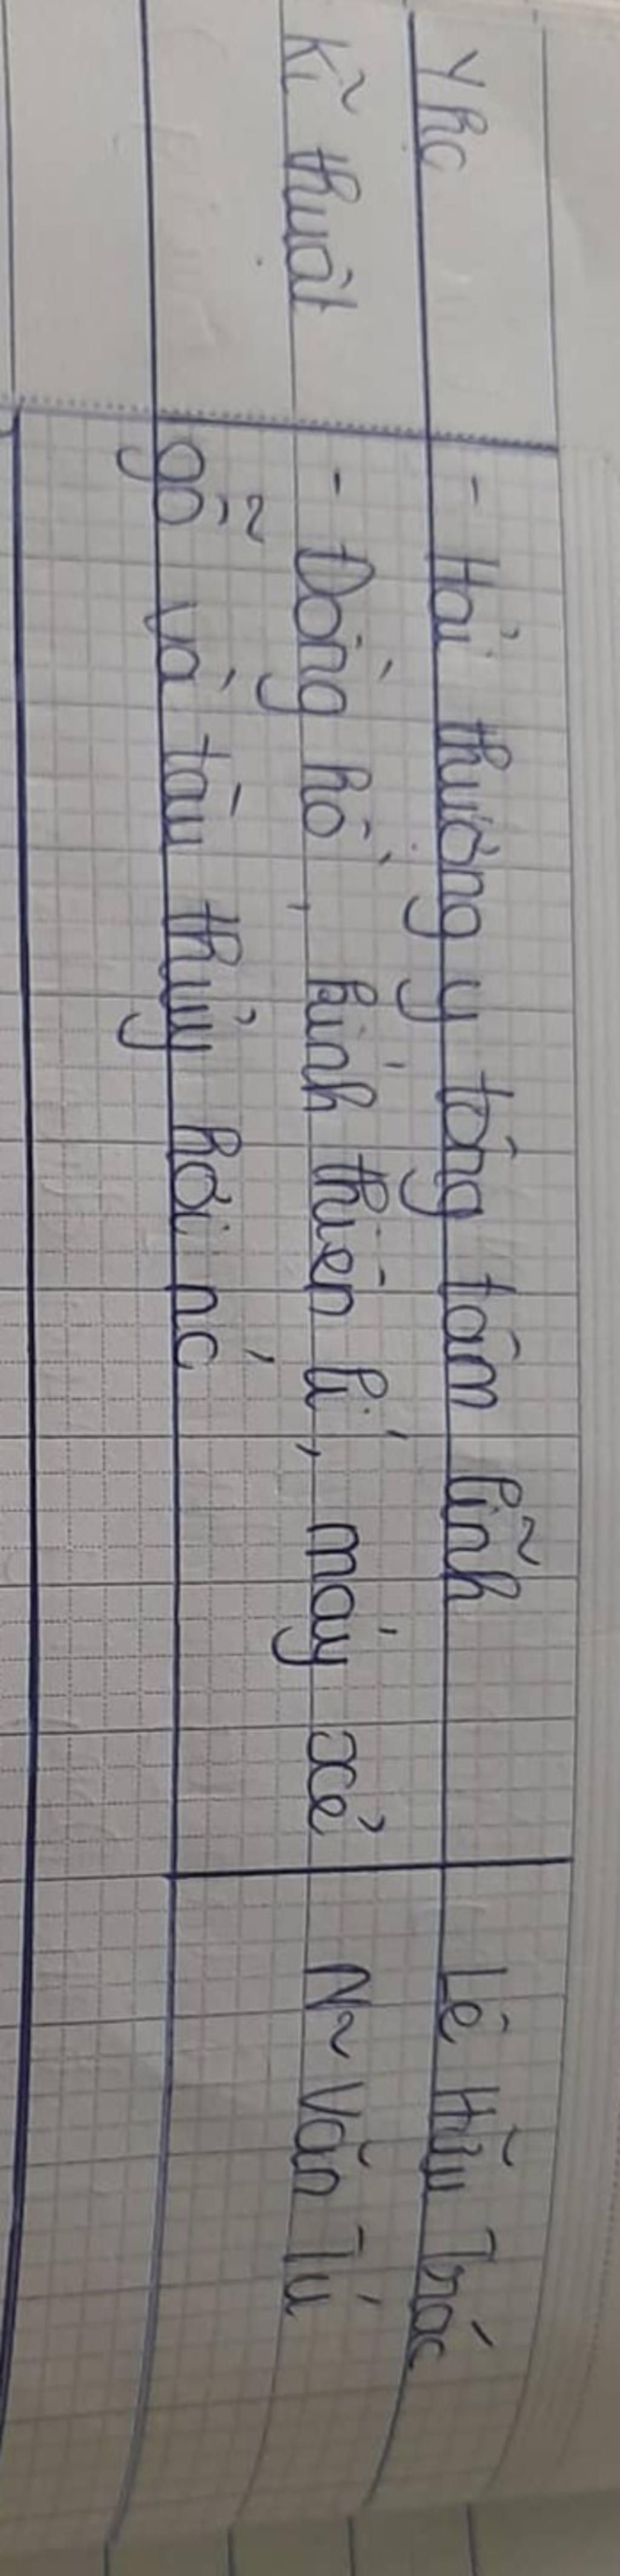 Yhc - Hải thượng y tông tâm lĩnh Lê Hữu Trác
Kĩ thuật - Đồng hồ, kính thiên lí, máy xẻ N~ Văn Tú
gỗ và tàu thủy hơi nc´